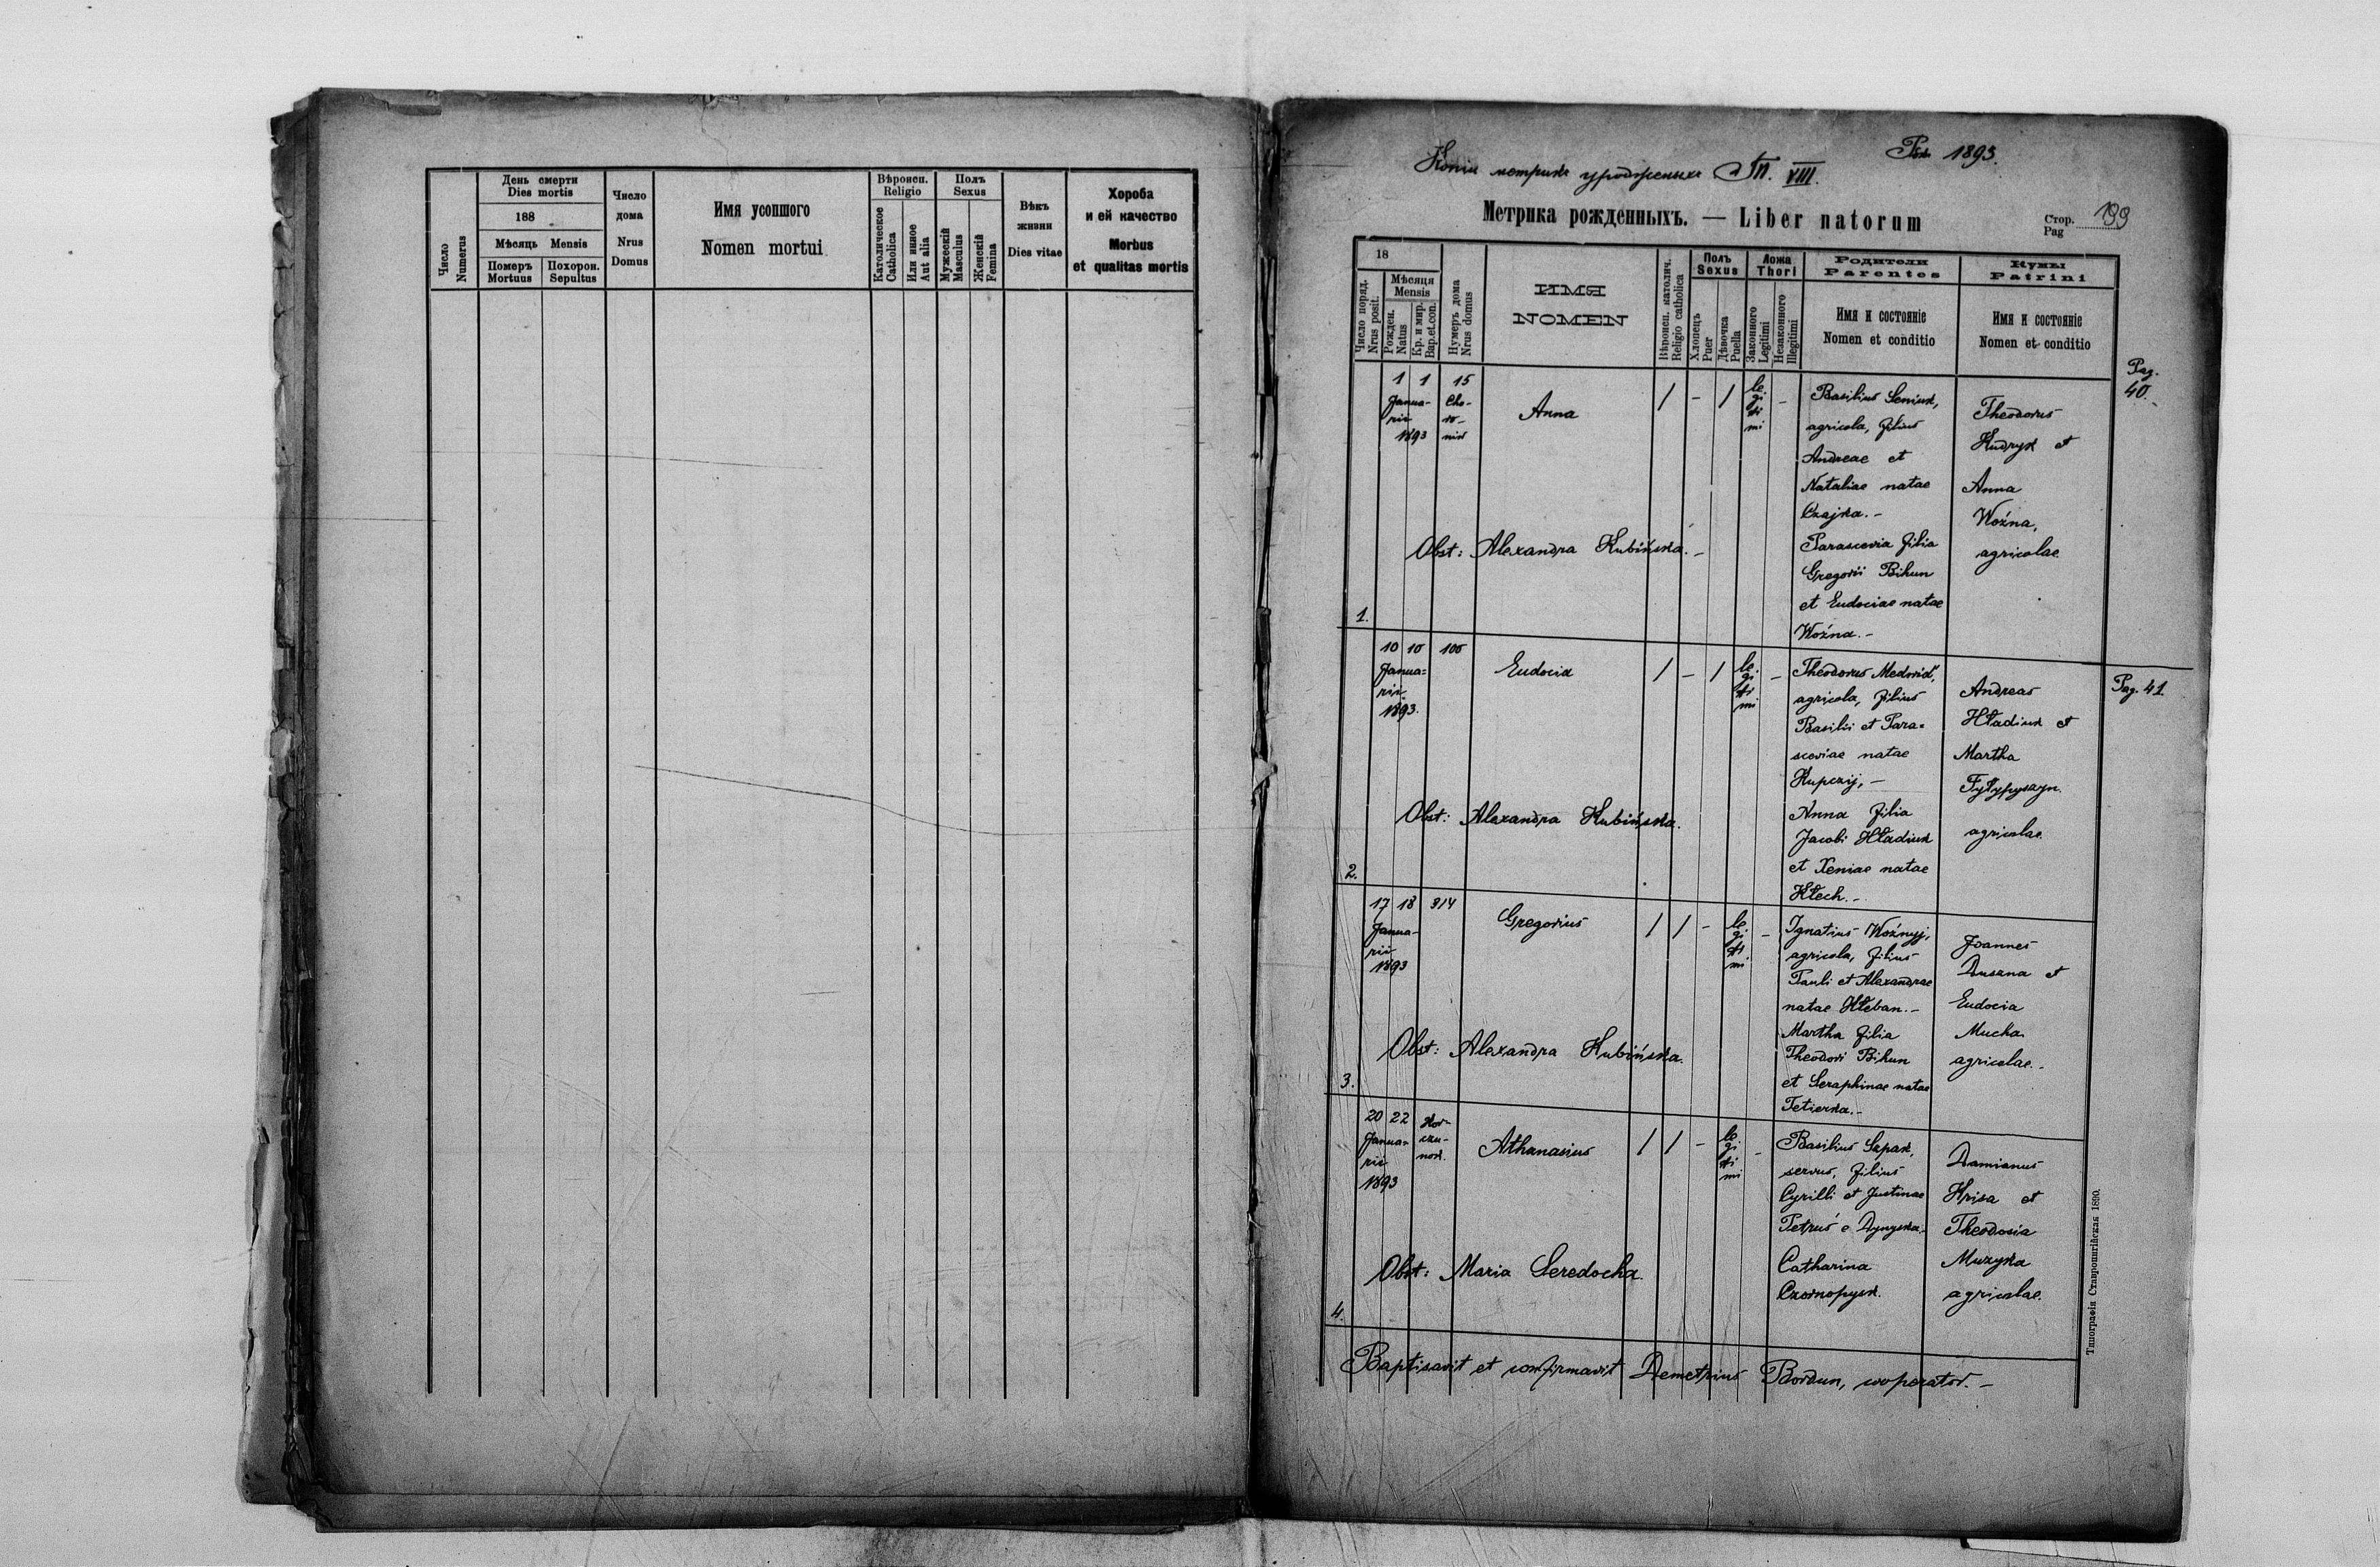 День смерти
Dies mortis
188
Мѣсяць Mensis
Померъ Mortuus
Похорон. Sepultus
Число Numerus
Число дома Nrus Domus
Имя усопшого
Nomen mortui
Вѣроисп. Religio
Католическое Catholica
Или инное Aut alia
Полъ Sexus
Мужескій Masculus
Женскій Femina
Вѣкъ жизни
Dies vitae
Хороба
и ей качество
Morbus
et qualitas mortis
1893
VIII.
Метрика рожденныхъ. — Liber natorum
Стор. Pag 199
18
Число поряд. Nrus posit.
Мѣсяця Mensis
Рожден. Natus
Кр. и мир. Bap.et.con.
Нумеръ дома Nrus domus
ИМЯ
NOMEN
Вѣроисп. католич. Religio catholica
Полъ Sexus
Хлопецъ Puer
Дѣвочка Puella
Ложа Thori
Законного Legitimi
Незаконного Illegitimi
Родители
Parentes
Имя и состояніе
Nomen et conditio
Кумы
Patrini
Имя и состояніе
Nomen et conditio
1 1 15
Janua-
rii
1893
Anna
/ - /
le
gi
ti
mi
-
Basilius Seniuk,
agricola, filius
Andreae et
Nataliae natae
Czajka.-
Parascevia filia
Gregorii Bihun
et Eudociae natae
Woźna.-
Theodorus
Kudryk et
Anna
Woźna,
agricolae
Pag.
40.-
Obst: Alexandra Kubińska.-
1.
10 10 100
Janua=
rii
1893.
Eudocia
/ - /
le
gi
ti
mi
-
Theodorus Medwid',
agricola, filius
Basilii et Para=
sceviae natae
Kupczij,-
Anna filia
Jacobi Hładiuk
et Xeniae natae
Klech.-
Andreas
Hładiuk et
Martha
agricolae.
Pag. 41
Obst: Alexandra Kubińska.
2.
17 18 314
Janua-
rii
1893
Gregorius
/ / -
le
gi
ti
mi
-
Ignatius Woźnyj,
agricola, filius
Pauli et Alexandrae
natae Hłeban.-
Martha filia
Theodori Bihun
et Seraphinae natae
Tetierka.-
Joannes
Duszna et
Eudocia
Mucha
agricolae.-
Obst: Alexandra Kubińska.
3.
20 22
Janua=
rii
1893
Athanasius
/ / -
le
gi
ti
mi
-
Basilius Sapak,
servus, filius
Cyrilli et Justinae
Catharina
Czornopysk.
Damianus
Krisa et
Theodosia
Muzyka
agricolae.
Obst: Maria Seredocha.
4.
Baptisavit et confirmavit Demetrius Bordun, cooperator.-
Типографія Ставропигійская 1890.